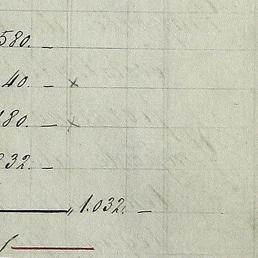 580. —
40. — x
180. — x
232. —
„ 1.032. —